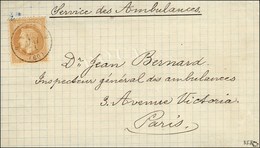 Service des Ambulances
Dr. Jean Bernard
Inspecteur général des ambulances
3, Avenue Victoria
Paris.